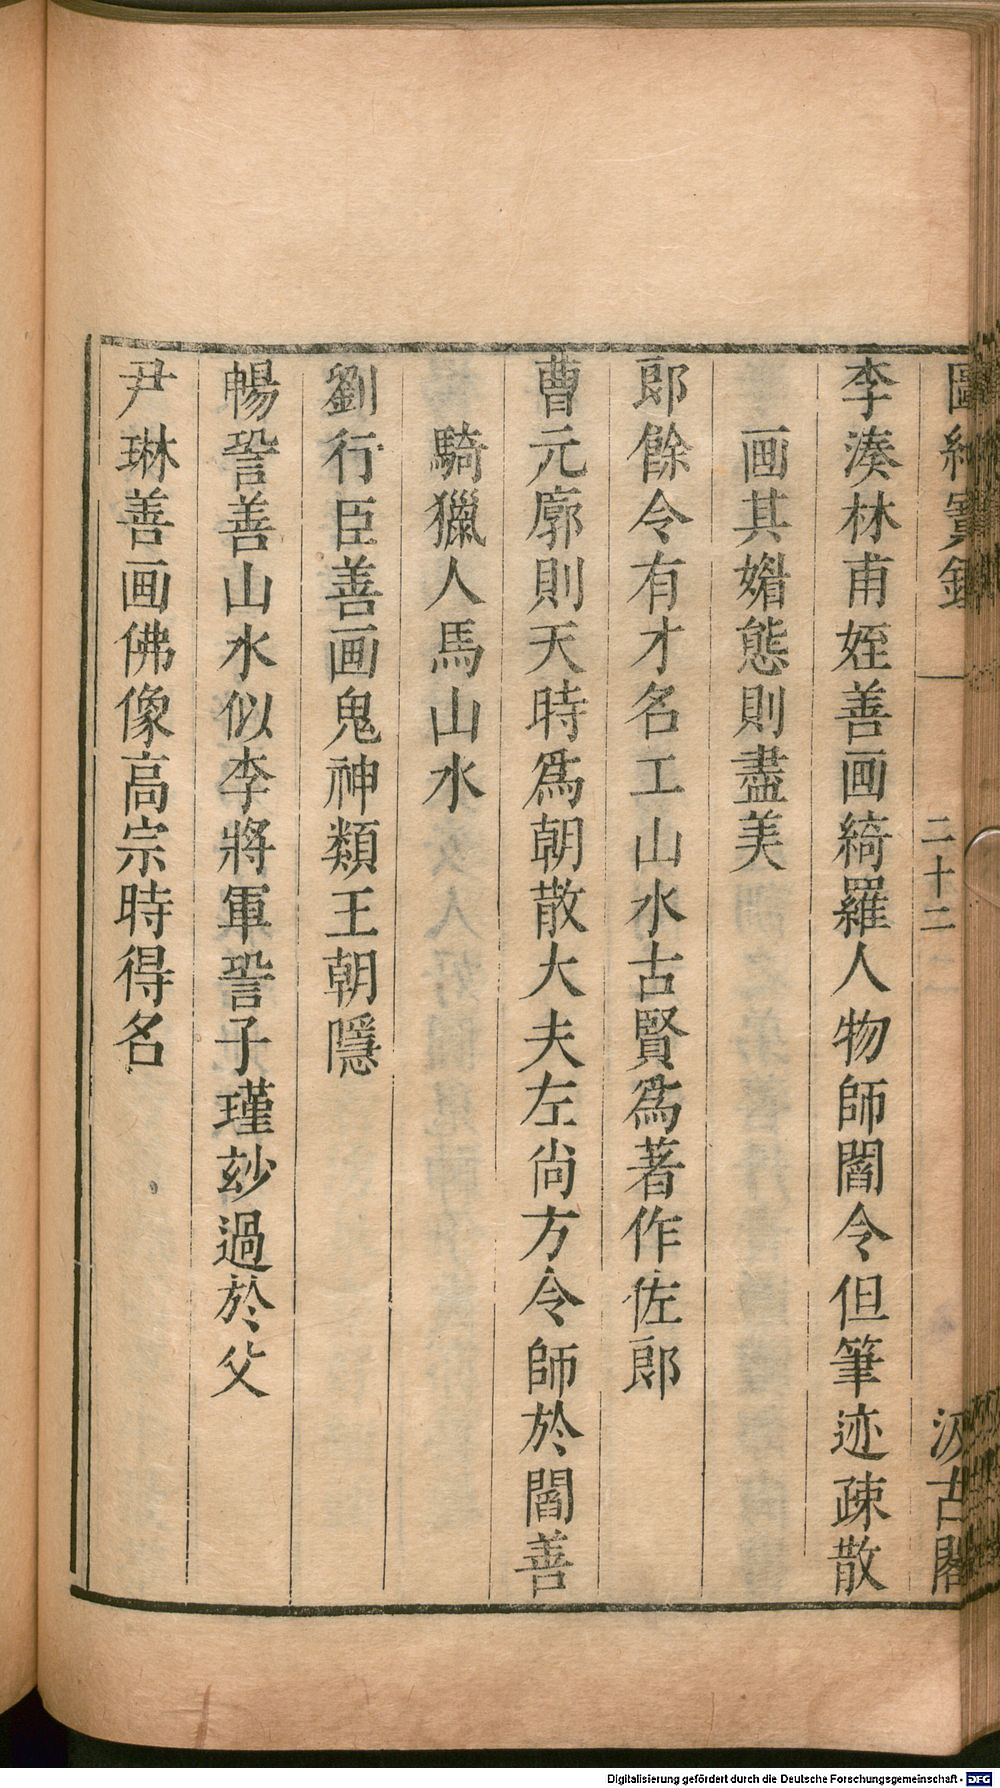 圖繪寶鑑 二十二 汲古閣
李湊林甫姪善画綺羅人物師閻令但筆迹疎散
画其媚態則盡美
郎餘令有才名工山水古賢爲著作佐郎
曹元廓則天時爲朝散大夫左尚方令師於閻善
騎獵人馬山水
劉行臣善画鬼神類王朝隱
暢䛒善山水似李將軍䛒子瑾玅過於父
尹琳善画佛像高宗時得名
Digitalisierung gefördert durch die Deutsche Forschungsgemeinschaft - DFG